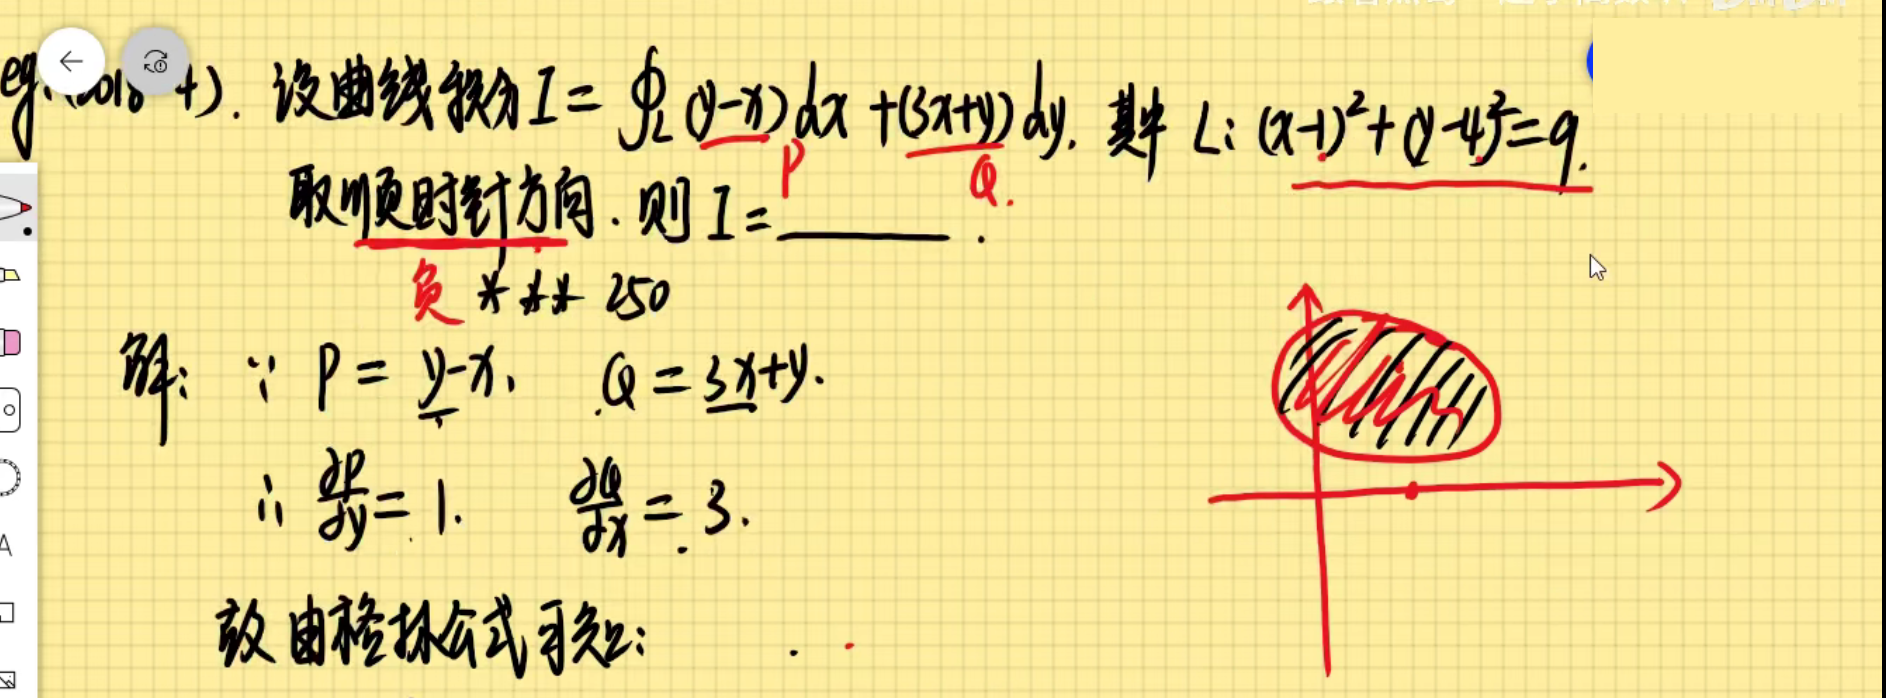 eg.(2018 4). 设曲线积分 I = ∮_L (y-x)dx + (3x+y)dy. 其中 L: (x-1)²+(y-4)²=9.
P Q.
取顺时针方向. 则 I = ______ .
负 *** 250
解: ∵ P = y-x, Q = 3x+y.
∴ ∂P/∂y = 1. ∂Q/∂x = 3.
故由格林公式可知: